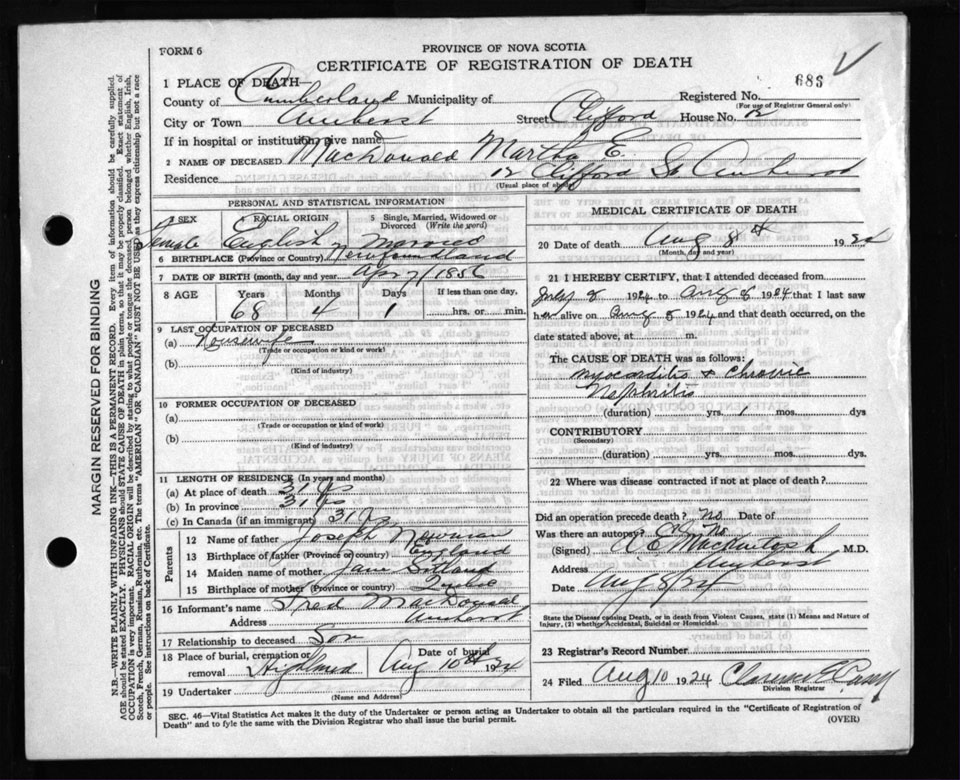 FORM 6
PROVINCE OF NOVA SCOTIA
CERTIFICATE OF REGISTRATION OF DEATH
1 PLACE OF DEATH—
686
County of Cumberland Municipality of Registered No.
(For use of Registrar General only)
City or Town Amherst Street Clifford House No. 12
If in hospital or institution, give name
2 NAME OF DECEASED MacDonald Martha E.
Residence 12 Clifford St Amherst
(Usual place of abode)
PERSONAL AND STATISTICAL INFORMATION
3 SEX 4 RACIAL ORIGIN 5 Single, Married, Widowed or Divorced (Write the word)
Female English Married
6 BIRTHPLACE (Province or Country) Newfoundland
7 DATE OF BIRTH (month, day and year) Apr 7/1856
8 AGE Years Months Days If less than one day,
68 4 1 hrs. or min.
9 LAST OCCUPATION OF DECEASED
(a) Housewife
(Trade or occupation or kind or work)
(b)
(Kind of industry)
10 FORMER OCCUPATION OF DECEASED
(a)
(Trade or occupation or kind or work)
(b)
(Kind of industry)
11 LENGTH OF RESIDENCE (In years and months)
(a) At place of death 31 yrs
(b) In province 31 yrs
(c) In Canada (if an immigrant) 31 yrs
Parents
12 Name of father Joseph Newman
13 Birthplace of father (Province or country) England
14 Maiden name of mother Jane
15 Birthplace of mother (Province or country)
16 Informant's name Fred MacDonald
Address Amherst
17 Relationship to deceased Son
18 Place of burial, cremation or removal Highland Date of burial Aug 10th 1924
19 Undertaker
(Name and Address)
MEDICAL CERTIFICATE OF DEATH
20 Date of death Aug 8th 1924
(Month, day and year)
21 I HEREBY CERTIFY, that I attended deceased from
July 8 1924 to Aug 8 1924 that I last saw
her alive on Aug 8 1924 and that death occurred, on the
date stated above, at m.
The CAUSE OF DEATH was as follows:
Myocarditis & Chronic
Nephritis
(duration) yrs. 1 mos. dys
CONTRIBUTORY
(Secondary)
(duration) yrs. mos. dys
22 Where was disease contracted if not at place of death?
Did an operation precede death? No Date of
Was there an autopsy? No
(Signed) C E MacKintosh M.D.
Address Amherst
Date Aug 8/24
State the Disease causing Death, or in death from Violent Causes, state (1) Means and Nature of
Injury, (2) whether Accidental, Suicidal or Homicidal.
23 Registrar's Record Number
24 Filed Aug 10 1924 Clarence E Casey
Division Registrar
SEC. 46—Vital Statistics Act makes it the duty of the Undertaker or person acting as Undertaker to obtain all the particulars required in the "Certificate of Registration of
Death" and to fyle the same with the Division Registrar who shall issue the burial permit.
(OVER)
MARGIN RESERVED FOR BINDING
N.B.—WRITE PLAINLY WITH UNFADING INK—THIS IS A PERMANENT RECORD. Every item of information should be carefully supplied.
AGE should be stated EXACTLY. PHYSICIANS should STATE CAUSE OF DEATH in plain terms, so that it may be properly classified. Exact statement of
OCCUPATION is very important. RACIAL ORIGIN will be described by stating to what people or tongue the deceased person belonged whether English, Irish,
Scotch, French, German, Russian, Ruthenian, etc. The terms "AMERICAN" OR "CANADIAN" MUST NOT BE USED as they express citizenship but not a race
or people. See instructions on back of Certificate.